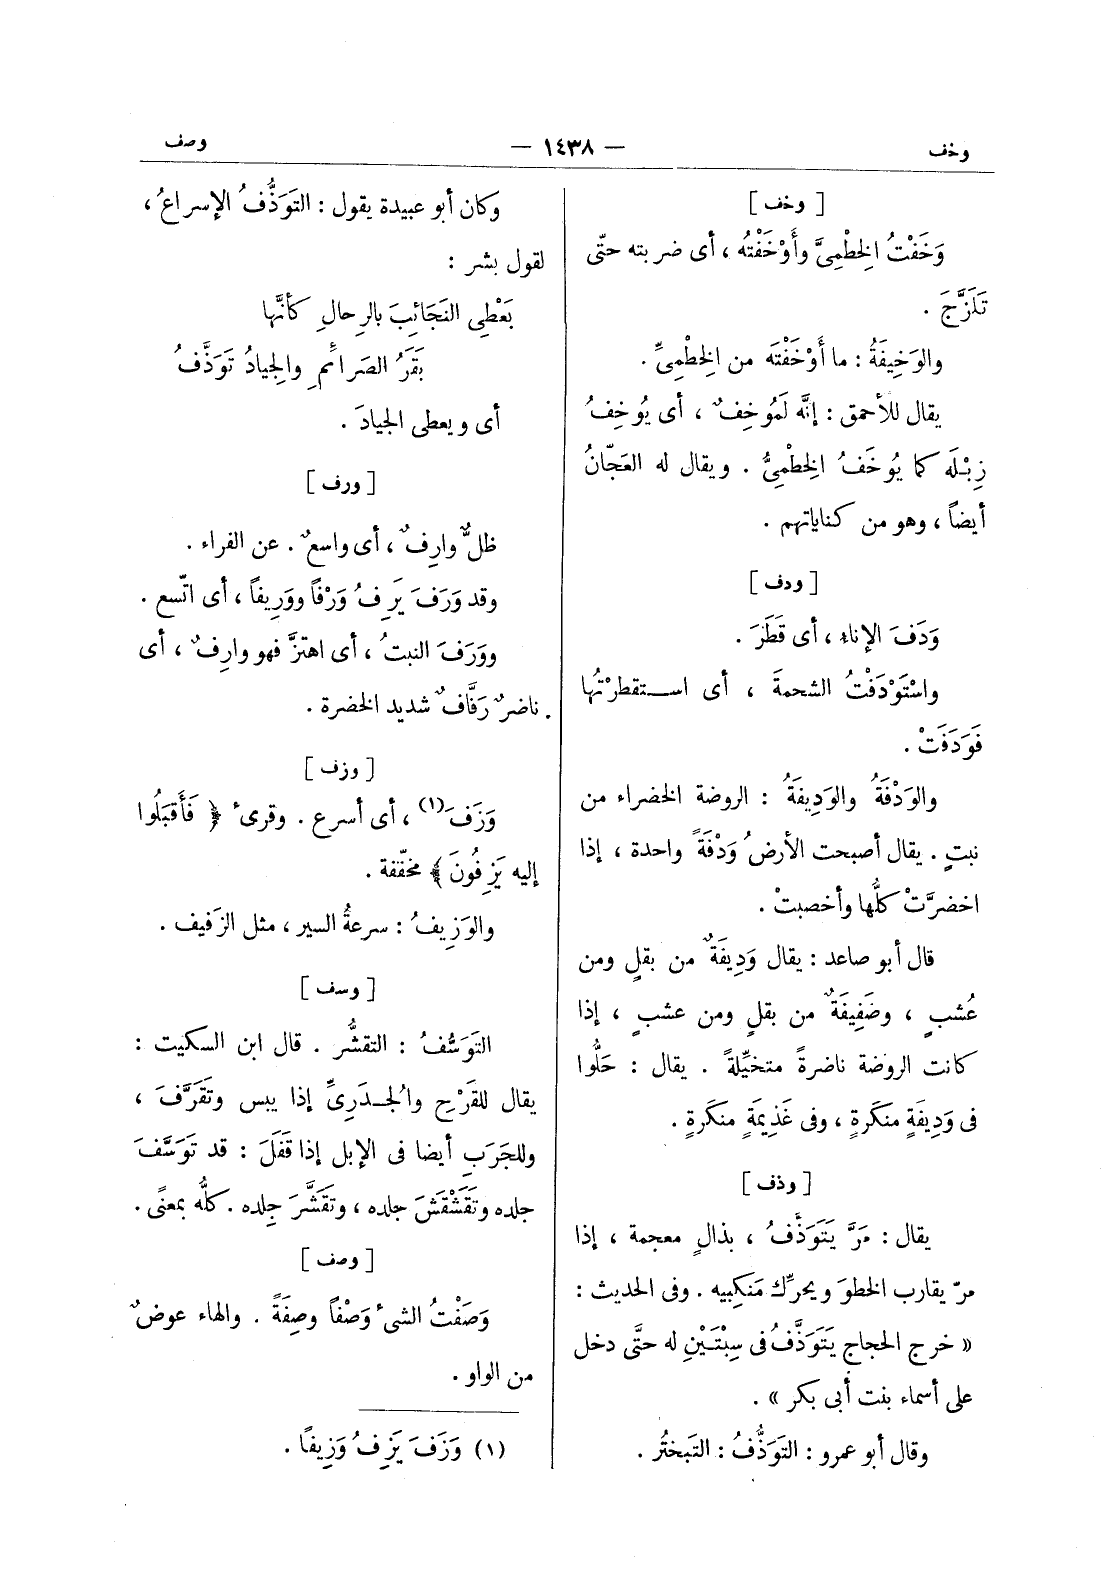 وخف
— ١٤٣٨ —
وصف
[ وخف ]
وَخَفْتُ الخِطْمِىَّ وأَوْخَفْتُه ، أى ضربته حتّى
تَلَزَّجَ .
والوَخِيفَةُ : ما أَوْخَفْتَه من الخِطْمِىِّ .
يقال للأحمق : إنَّه لَمُوخِفٌ ، أى يُوخِفُ
زِبْلَه كما يُوخَفُ الخِطْمِىُّ . ويقال له العَجّانُ
أيضاً ، وهو من كناياتهم .
[ ودف ]
وَدَفَ الإناء ، أى قَطَرَ .
واسْتَوْدَفْتُ الشحمةَ ، أى استقطرْتُها
فَوَدَفَتْ .
والوَدْفَةُ والوَدِيفَةُ : الروضة الخضراء من
نبتٍ . يقال أصبحت الأرضُ وَدْفَةً واحدة ، إذا
اخضرَّتْ كلُّها وأخصبتْ .
قال أبو صاعد : يقال وَدِيفَةٌ من بقلٍ ومن
عُشبٍ ، وضَفِيفَةٌ من بقلٍ ومن عشبٍ ، إذا
كانت الروضة ناضرةً متخيِّلةً . يقال : حَلُّوا
فى وَدِيفَةٍ منكَرةٍ ، وفى غَذِيمَةٍ منكَرةٍ .
[ وذف ]
يقال : مَرَّ يَتَوَذَّفُ ، بذالٍ معجمة ، إذا
مرّ يقارب الخطوَ ويحرِّك مَنكِبيه . وفى الحديث :
« خرج الحجاج يَتَوَذَّفُ فى سِبْتَيْنِ له حتَّى دخل
على أسماء بنت أبى بكر » .
وقال أبو عمرو : التَوَذُّفُ : التَبختُر .
وكان أبو عبيدة يقول : التَوَذُّفُ الإسراعُ ،
لقول بشر :
يَعْطِى النَجَائِبَ بالرِحالِ كأنَّها
بَقَرُ الصَرائِمِ والجِيادُ تَوَذَّفُ
أى ويعطى الجيادَ .
[ ورف ]
ظلٌّ وارِفٌ ، أى واسعٌ . عن الفراء .
وقد وَرَفَ يَرِفُ وَرْفاً ووَرِيفاً ، أى اتّسع .
ووَرَفَ النبتُ ، أى اهتزَّ فهو وارِفٌ ، أى
ناضرٌ رَفَّافٌ شديد الخضرة .
[ وزف ]
وَزَفَ (١) ، أى أسرع . وقرئ ﴿ فَأَقبَلُوا
إليه يَزِفُونَ ﴾ مخفّفة .
والوَزِيفُ : سرعةُ السير ، مثل الزَفيف .
[ وسف ]
التَوَسُّفُ : التقشُّر . قال ابن السكيت :
يقال للقَرْحِ والجُدَرِىِّ إذا يبس وتَقَرَّفَ ،
وللجَرَبِ أيضا فى الإبل إذا قَفَلَ : قد تَوَسَّفَ
جلده وتَقَشْقَشَ جلده ، وتَقَشَّرَ جِلده . كلُّه بمعنًى .
[ وصف ]
وَصَفْتُ الشىءَ وَصْفاً وصِفَةً . والهاء عوضٌ
من الواو .
(١) وَزَفَ يَزِفُ وَزِيفاً .